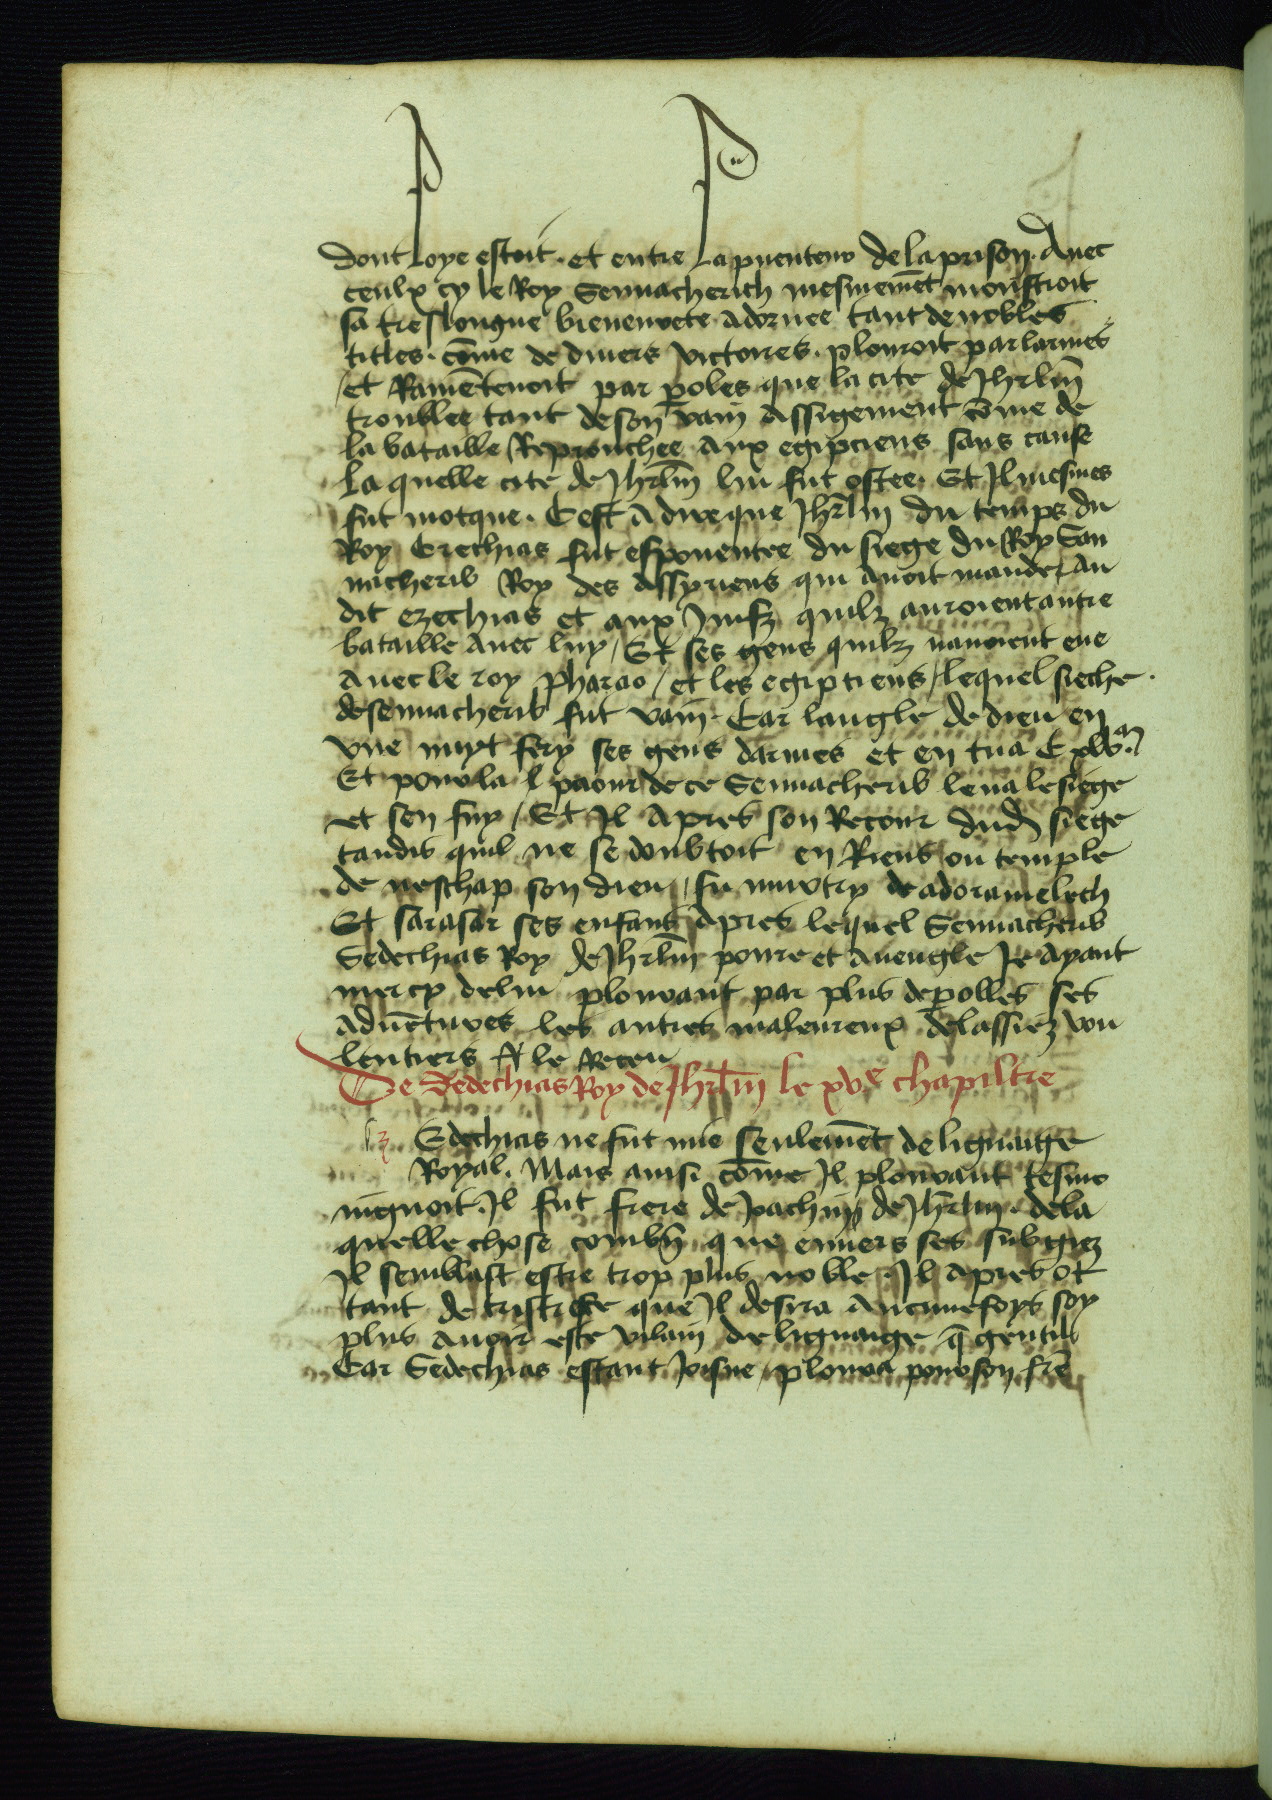 dont loye estoit . et entre la puenteur de la prison . Avec
ceulx cy le Roy Sennacherich mesmemẽt monstroit
sa treslongue bieneurete adornee tant de nobles
titles . cõme de divers victoires . plouroit par larmes
et Ramẽtevoit par poles que la cite de Jhrlm̃
troublee tant de son vain assigement cõme de
la bataille Reprouchee aux egipciens sans cause
La quelle cite de Jhrlm̃ lui fut ostee . Et Il mesmes
fut mocque . Cest a dire que Jhrlm̃ du temps du
Roy Ezechias fut espouentee du siege du Roy San
nacherib Roy des assyriens qui avoit mande au
dit ezechias et aux Juifz quilz auroient autre
bataille avec luy / Et ses gens quilz navoient eue
avec le roy pharao / et les egiptiens / lequel sieche
de sennacherib fut vain . Car langle de dieu en
une nuyt fery ses gens darmes et en tua C xlvᵐ
Et pour la paour de ce Sennacherib leva le siege
et sen fuy / Et Il apres son Retour dud siege
tandis quil ne se doubtoit en Riens ou temple
de neschap son dieu / fu murtry de adoramelech
Et sarasar ses enfans apres lequel Sennacherib
Sedechias Roy de Jhrlm̃ poure et aveugle Je ayant
mercy de lui plourant par plus de polles ses
advẽtures les autres maleureux delassiez vou
lentiers Je le Receu
De Sedechias Roy de Jhrlm̃ le xvᵉ chapiltre
Sedechias ne fut mie seulemẽt de lignaige
Royal . Mais ainsi cõme Il plourant tesmo
ingnoit . Il fut frere de Joachim de Jhrlm̃ . de la
quelle chose combñ que envers ses subgiez
Il semblast estre trop plus noble . Il apres ot
tant de tristesse que Il desira aucunefoys soy
plus avoir este vilain de lignaige q̃ gentil
Car Sedechias estant Josne / ploura pour son frẽ